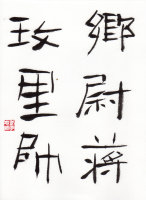 鄉尉蔣
玫里帥